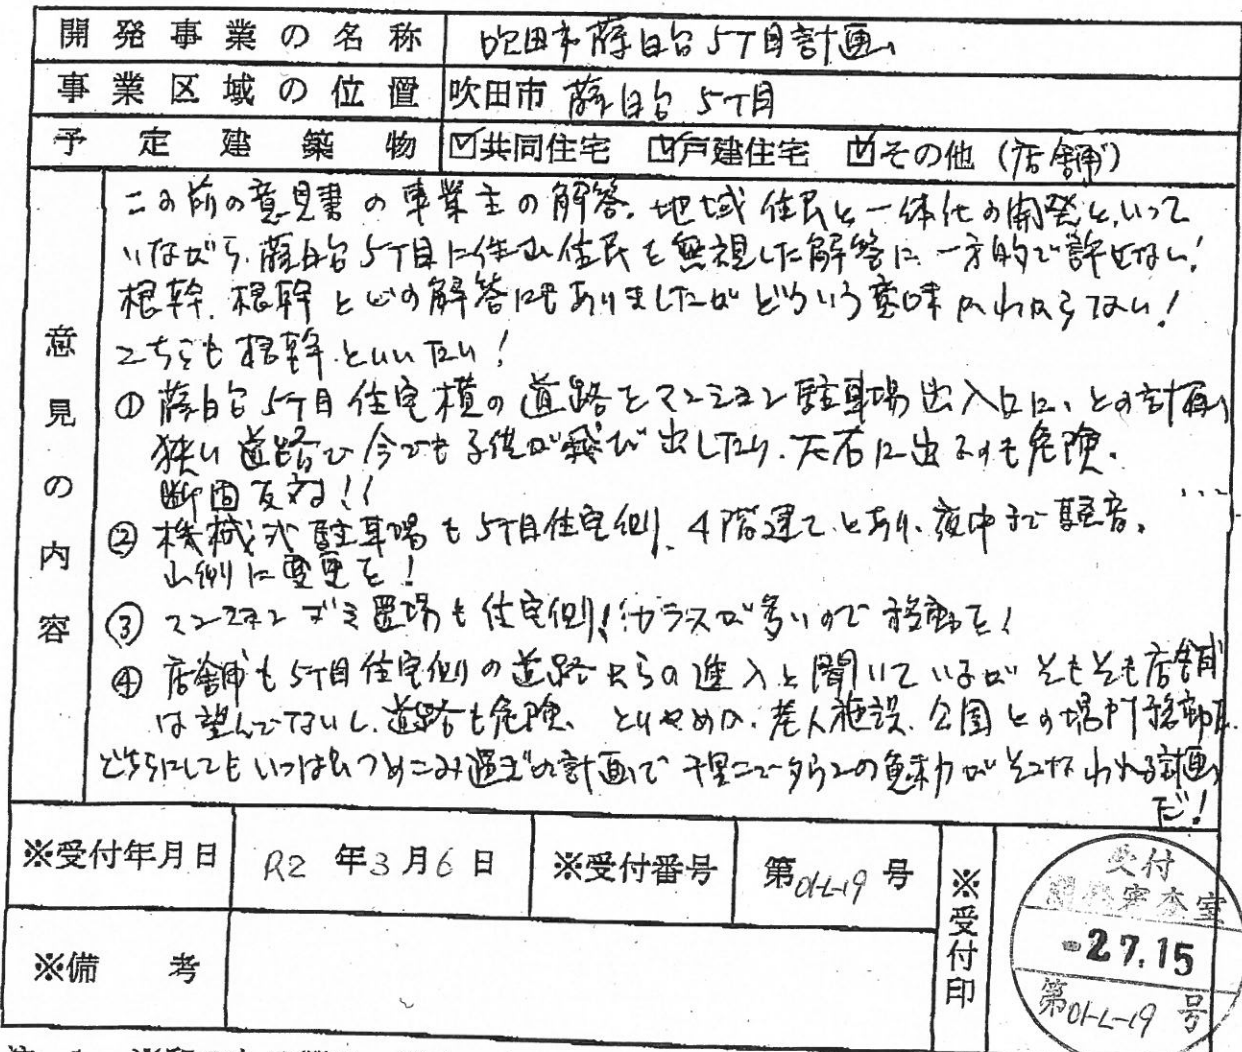 開発事業の名称 吹田市藤白台5丁目計画
事業区域の位置 吹田市 藤白台 5丁目
予定建築物 ☑共同住宅 ☑戸建住宅 ☑その他（店舗）
意見の内容
この前の意見書の事業主の解答。地域住民と一体化の開発と、いって
いながら、藤白台5丁目に住む住民を無視した解答に一方的で許せない！
根幹、根幹と の解答にもありましたがどういう意味かわからない！
こちらも根幹といいたい！
① 藤白台5丁目住宅横の道路をマンション駐車場出入口に、との計画
狭い道路で今でも子供が飛び出したり、左右に出るのも危険。
断固反対！！
② 機械式駐車場も5丁目住宅側、4階建て、とあり、夜中まで騒音。
山側に変更を！
③ マンションゴミ置場も住宅側！カラスが多いので移動を！
④ 店舗も5丁目住宅側の道路からの進入と聞いているがそもそも店舗
は望んでないし、道路も危険、とりやめか、老人施設、公園との場所移動を。
どちらにしてもいっぱいつめこみ過ぎの計画で千里ニュータウンの魅力がそこなわれる計画
だ！
※受付年月日 R2年3月6日 ※受付番号 第01-L-19号 ※受付印
※備考
受付
開発審査室
-2 7.15
第01-L-19号